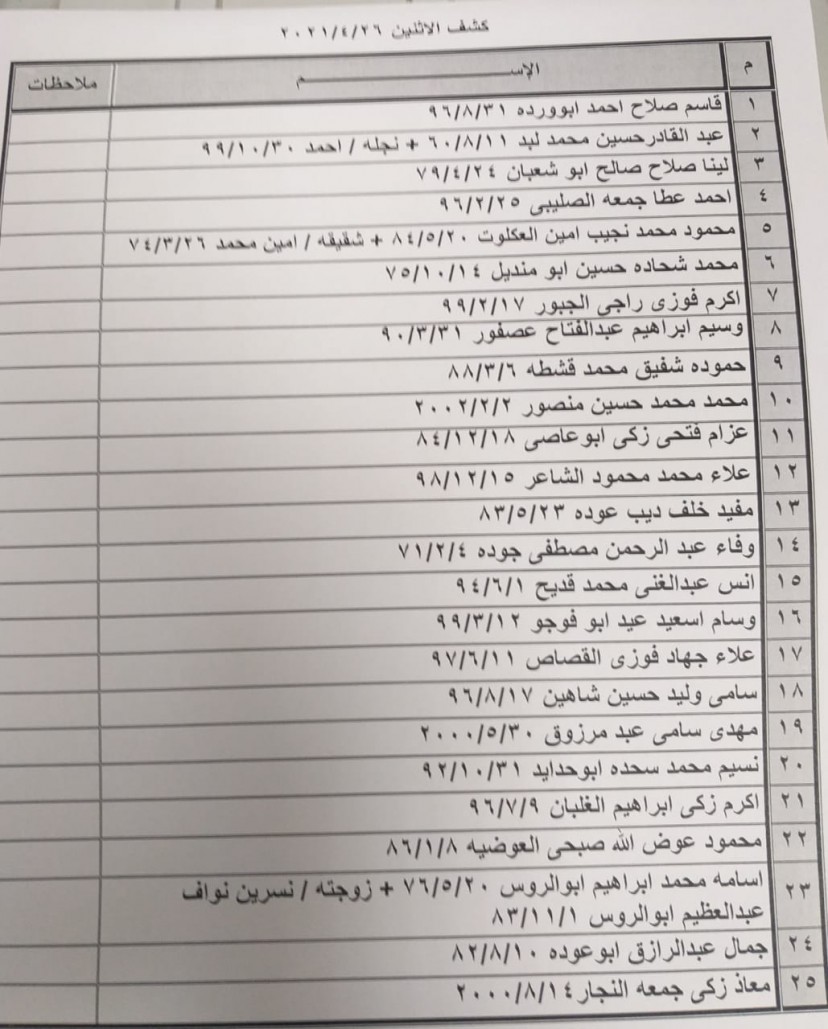 كشف الاثنين ٢٠٢١/٤/٢٦
م الإســـــــــم ملاحظات
١ قاسم صلاح احمد ابوورده ٩٦/٨/٣١
٢ عبد القادرحسين محمد لبد ٦٠/٨/١١ + نجله / احمد ٩٩/١٠/٣٠
٣ لينا صلاح صالح ابو شعبان ٧٩/٤/٢٤
٤ احمد عطا جمعه الصليبى ٩٦/٢/٢٥
٥ محمود محمد نجيب امين العكلوت ٨٤/٥/٢٠ + شقيقه / امين محمد ٧٤/٣/٢٦
٦ محمد شحاده حسين ابو منديل ٧٥/١٠/١٤
٧ اكرم فوزى راجى الجبور ٩٩/٢/١٧
٨ وسيم ابراهيم عبدالفتاح عصفور ٩٠/٣/٣١
٩ حموده شفيق محمد قشطه ٨٨/٣/٦
١٠ محمد محمد حسين منصور ٢٠٠٢/٢/٢
١١ عزام فتحى زكى ابوعاصى ٨٤/١٢/١٨
١٢ علاء محمد محمود الشاعر ٩٨/١٢/١٥
١٣ مفيد خلف ديب عوده ٨٣/٥/٢٣
١٤ وفاء عبد الرحمن مصطفى جوده ٧١/٢/٤
١٥ انس عبدالغنى محمد قديح ٩٤/٦/١
١٦ وسام اسعيد عيد ابو فوجو ٩٩/٣/١٢
١٧ علاء جهاد فوزى القصاص ٩٧/٦/١١
١٨ سامى وليد حسين شاهين ٩٦/٨/١٧
١٩ مهدى سامى عبد مرزوق ٢٠٠٠/٥/٣٠
٢٠ نسيم محمد سحده ابوحدايد ٩٢/١٠/٣١
٢١ اكرم زكى ابراهيم الغلبان ٩٦/٧/٩
٢٢ محمود عوض الله صبحى العوضيه ٨٦/١/٨
٢٣ اسامه محمد ابراهيم ابوالروس ٧٦/٥/٢٠ + زوجته / نسرين نواف
عبدالعظيم ابوالروس ٨٣/١١/١
٢٤ جمال عبدالرازق ابوعوده ٨٢/٨/١٠
٢٥ معاذ زكى جمعه النجار ٢٠٠٠/٨/١٤